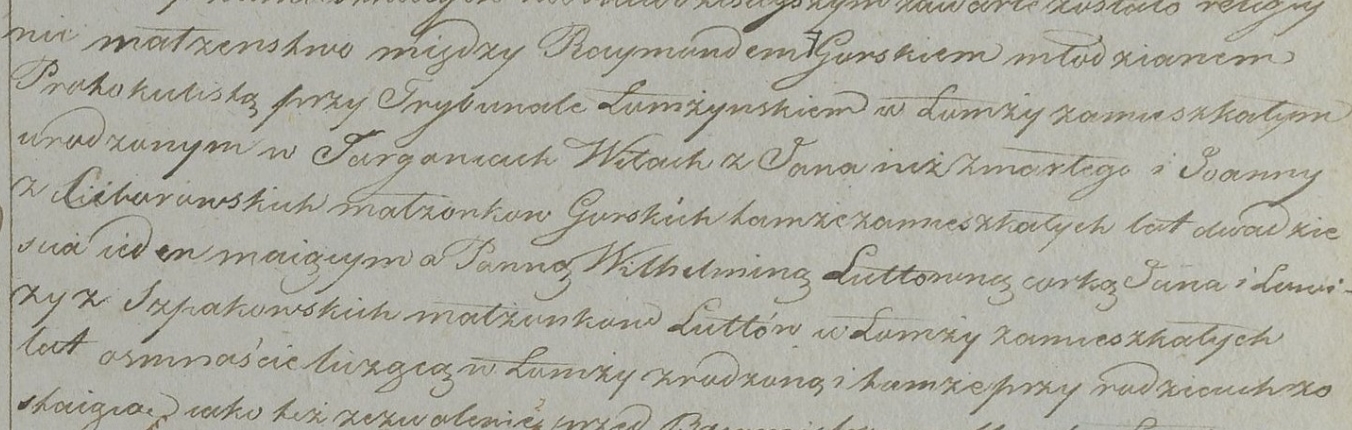 zawarte zostało religiy
nie małżenstwo między Raymundem Gorskiem młodzianem
Protokulistą przy Trybunale Łomżynskiem w Łomży zamieszkałym
urodzonym w Targoniach Witach z Jana iuż zmarłego i Joanny
z Ciiborowskich małzonkow Gorskich tamże zamieszkałych lat dwadzie
scia ieden maiącym a Panną Wilhelminą Luttowną corką Jana i Lowi-
zy z Szpakowskich małzonkow Luttów w Łomży zamieszkałych
lat osmnaście liczącą w Łomży zrodzoną i tamze przy rodzicach zo
staiącą iako też zezwolenie przed